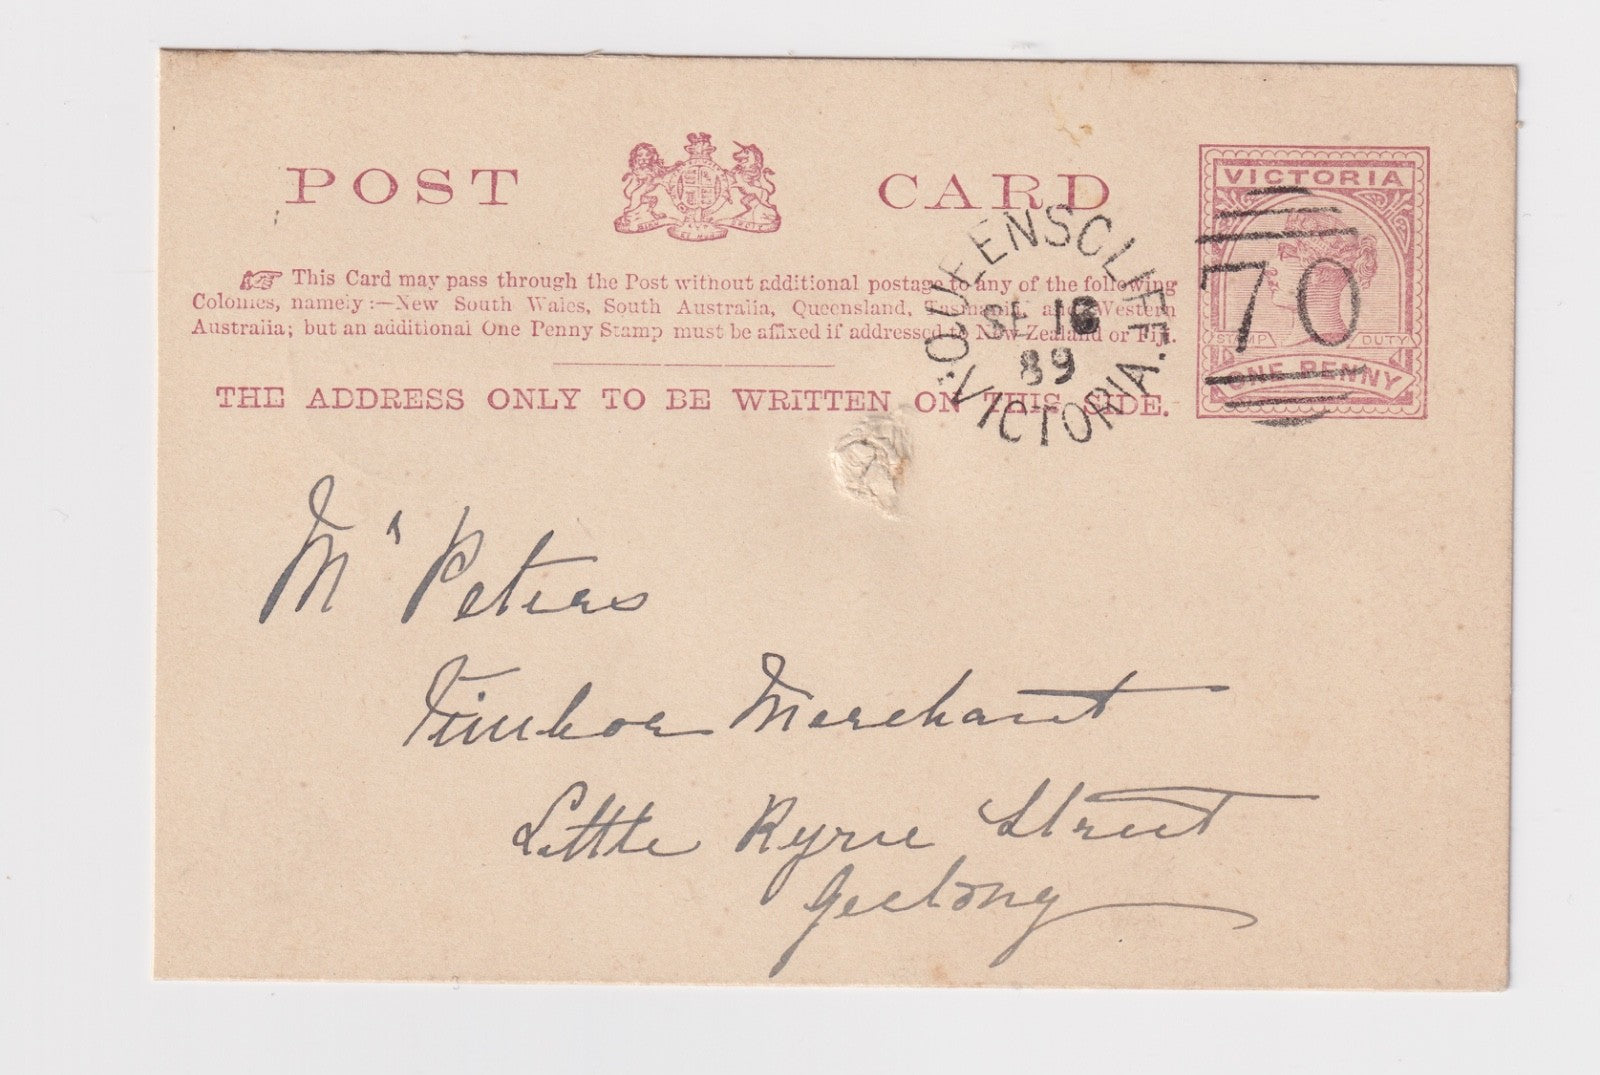 POST CARD
VICTORIA
This Card may pass through the Post without additional postage to any of the following
Colonies, namely:—New South Wales, South Australia, Queensland, Tasmania and Western
Australia; but an additional One Penny Stamp must be affixed if addressed to New Zealand or Fiji.
THE ADDRESS ONLY TO BE WRITTEN ON THIS SIDE.
QUEENSCLIFF
SE 16
89
VICTORIA.
70
STAMP DUTY
ONE PENNY
Mr Peters
Timber Merchant
Little Ryrie Street
Geelong